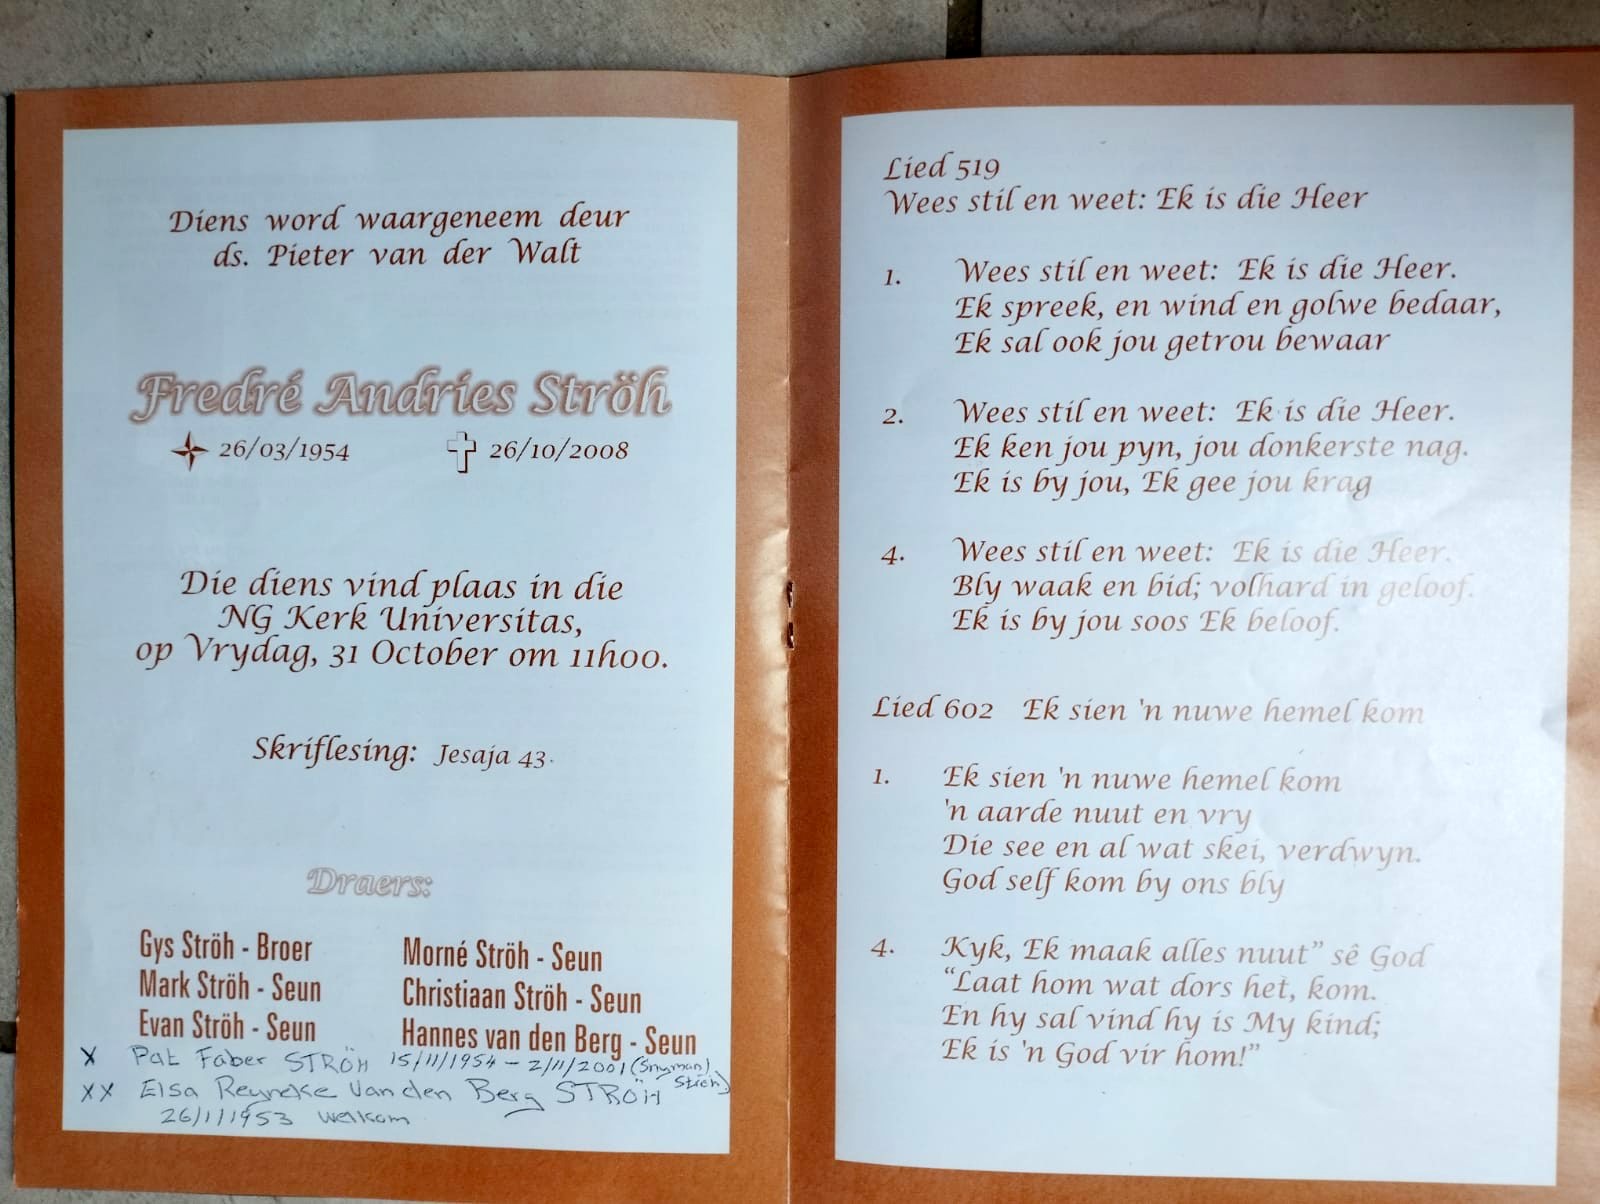 Diens word waargeneem deur
ds. Pieter van der Walt
Fredré Andries Ströh
26/03/1954 26/10/2008
Die diens vind plaas in die
NG Kerk Universitas,
op Vrydag, 31 October om 11h00.
Skriflesing: Jesaja 43.
Draers:
Gys Ströh - Broer
Mark Ströh - Seun
Evan Ströh - Seun
Morné Ströh - Seun
Christiaan Ströh - Seun
Hannes van den Berg - Seun
X Pat Faber STRÖH 15/11/1954 - 2/11/2001 (Snyman)
Ströh)
XX Elsa Reyneke Van den Berg STRÖH
26/1/1953 Welkom
Lied 519
Wees stil en weet: Ek is die Heer
1. Wees stil en weet: Ek is die Heer.
Ek spreek, en wind en golwe bedaar,
Ek sal ook jou getrou bewaar
2. Wees stil en weet: Ek is die Heer.
Ek ken jou pyn, jou donkerste nag.
Ek is by jou, Ek gee jou krag
4. Wees stil en weet: Ek is die Heer.
Bly waak en bid; volhard in geloof.
Ek is by jou soos Ek beloof.
Lied 602 Ek sien 'n nuwe hemel kom
1. Ek sien 'n nuwe hemel kom
'n aarde nuut en vry
Die see en al wat skei, verdwyn.
God self kom by ons bly
4. Kyk, Ek maak alles nuut” sê God
“Laat hom wat dors het, kom.
En hy sal vind hy is My kind;
Ek is 'n God vir hom!”